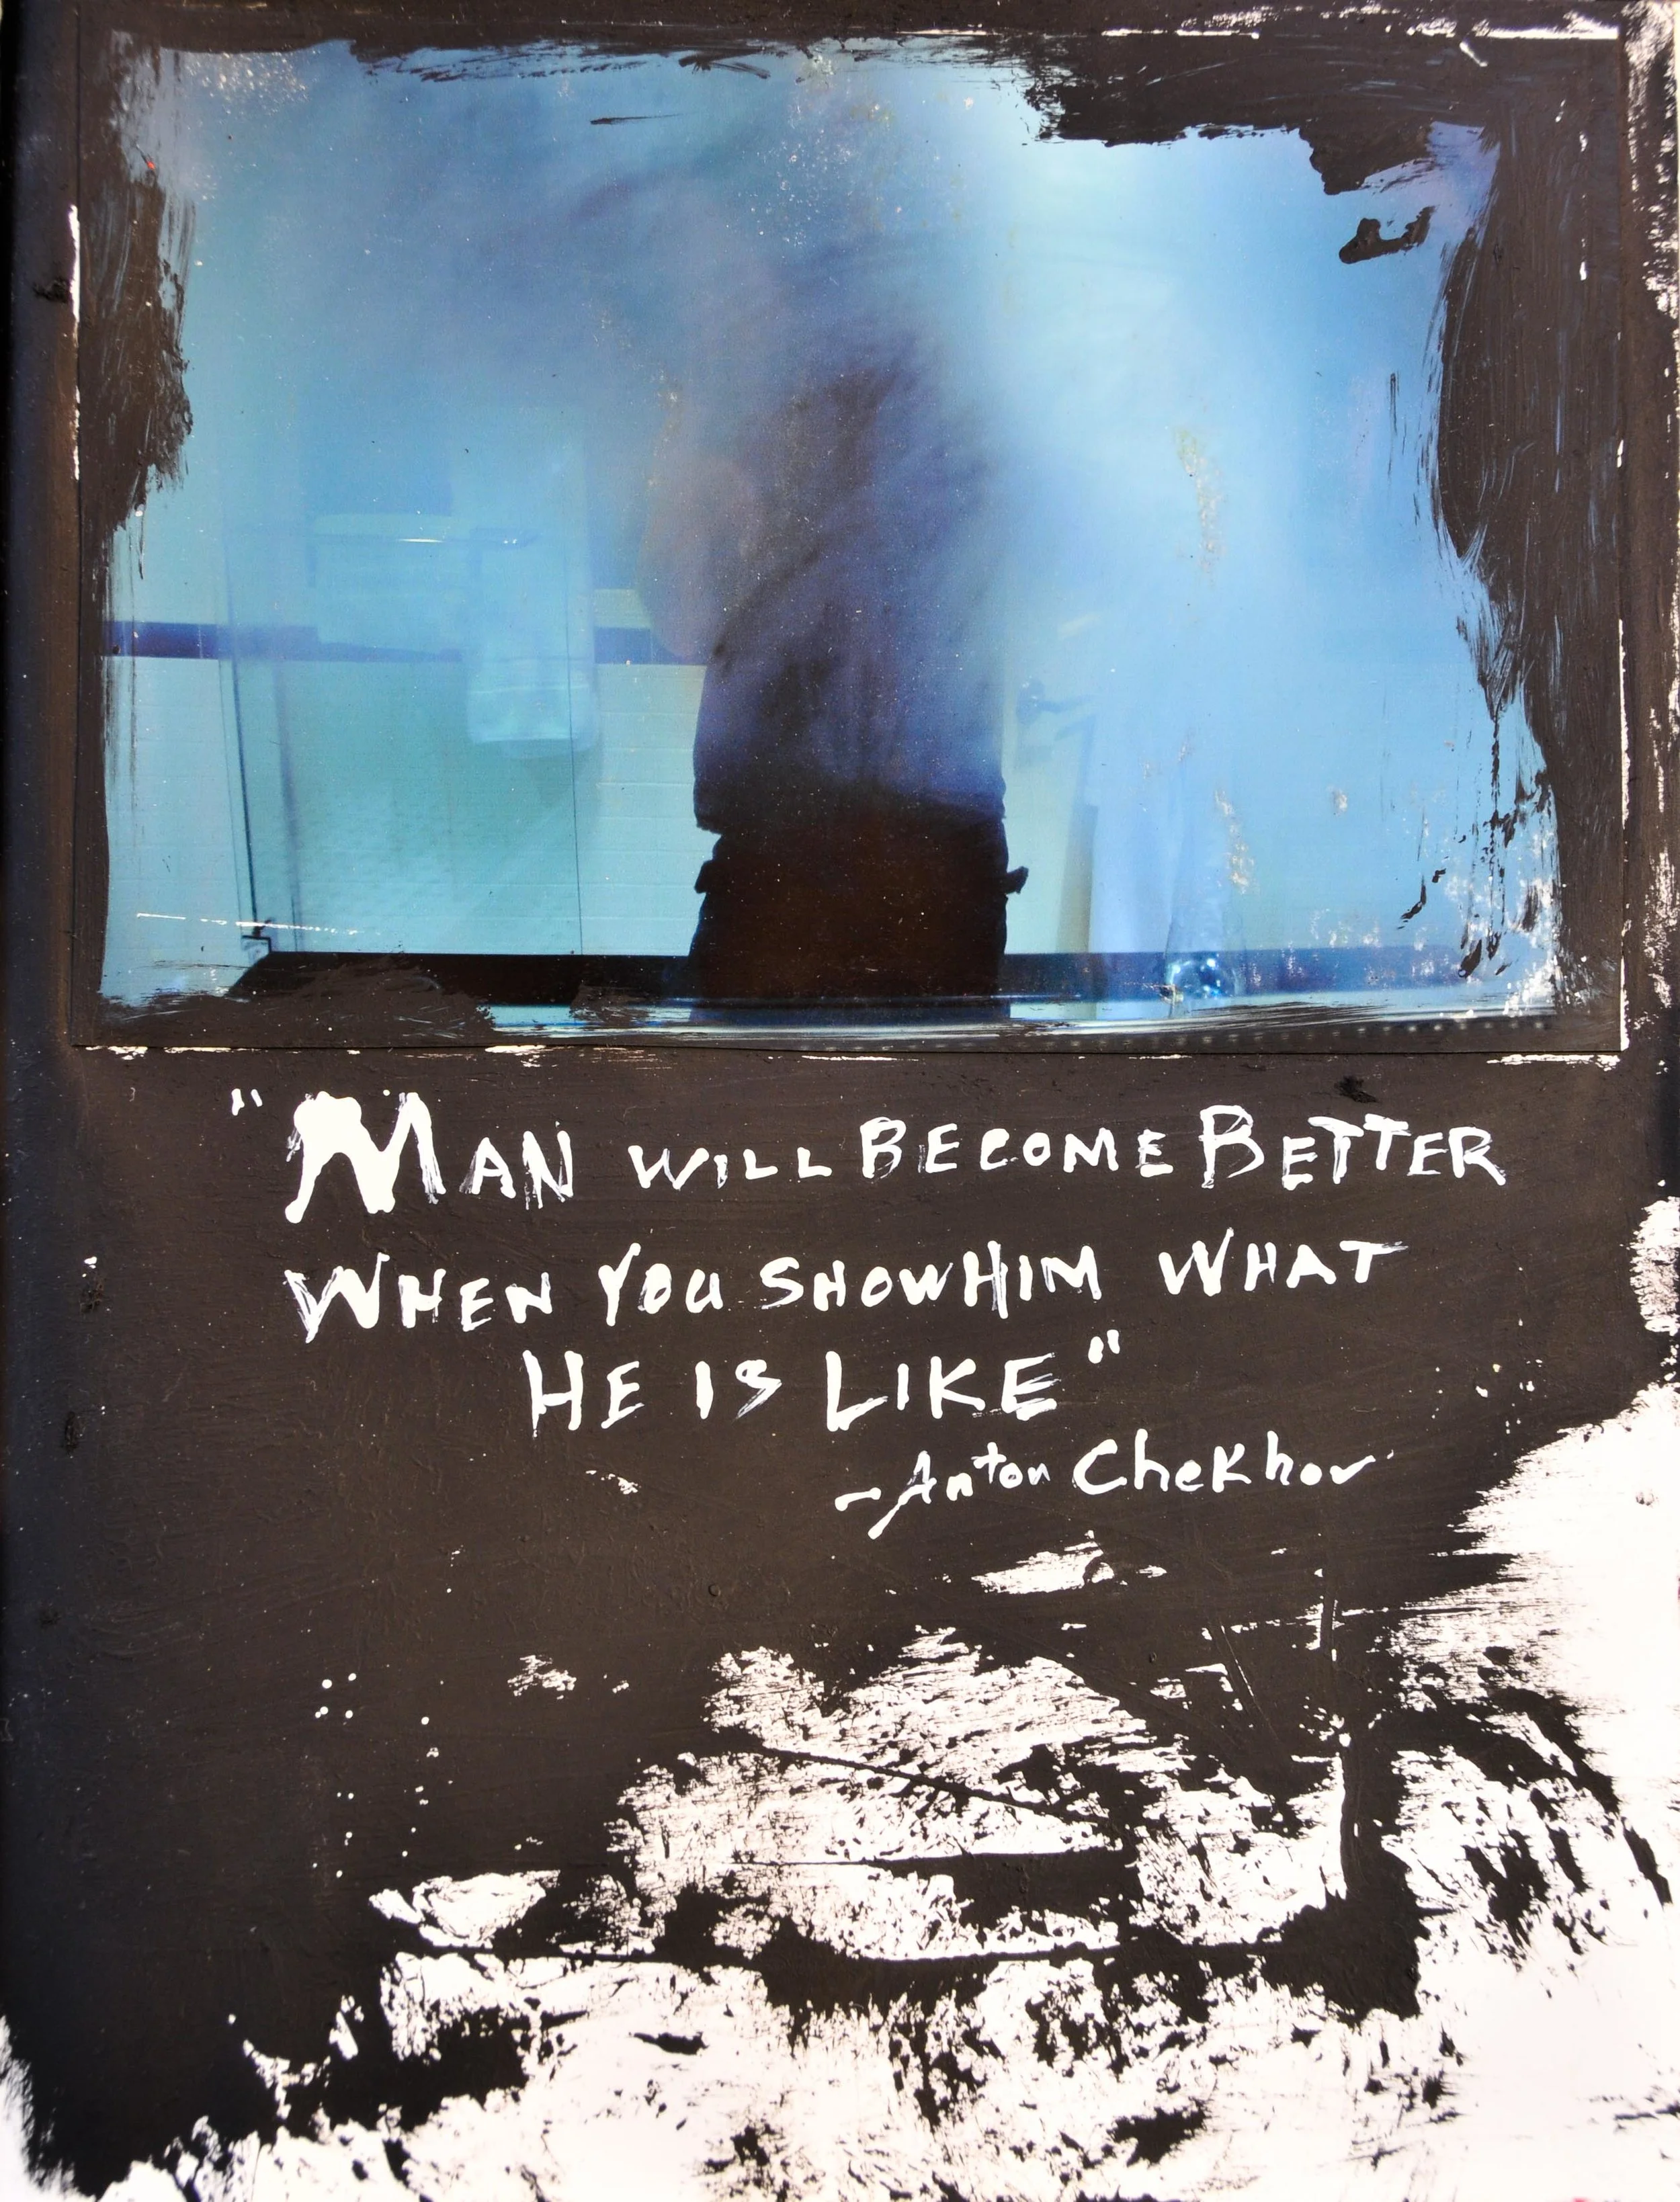 "MAN WILL BECOME BETTER
WHEN YOU SHOW HIM WHAT
HE IS LIKE"
-Anton Chekhov